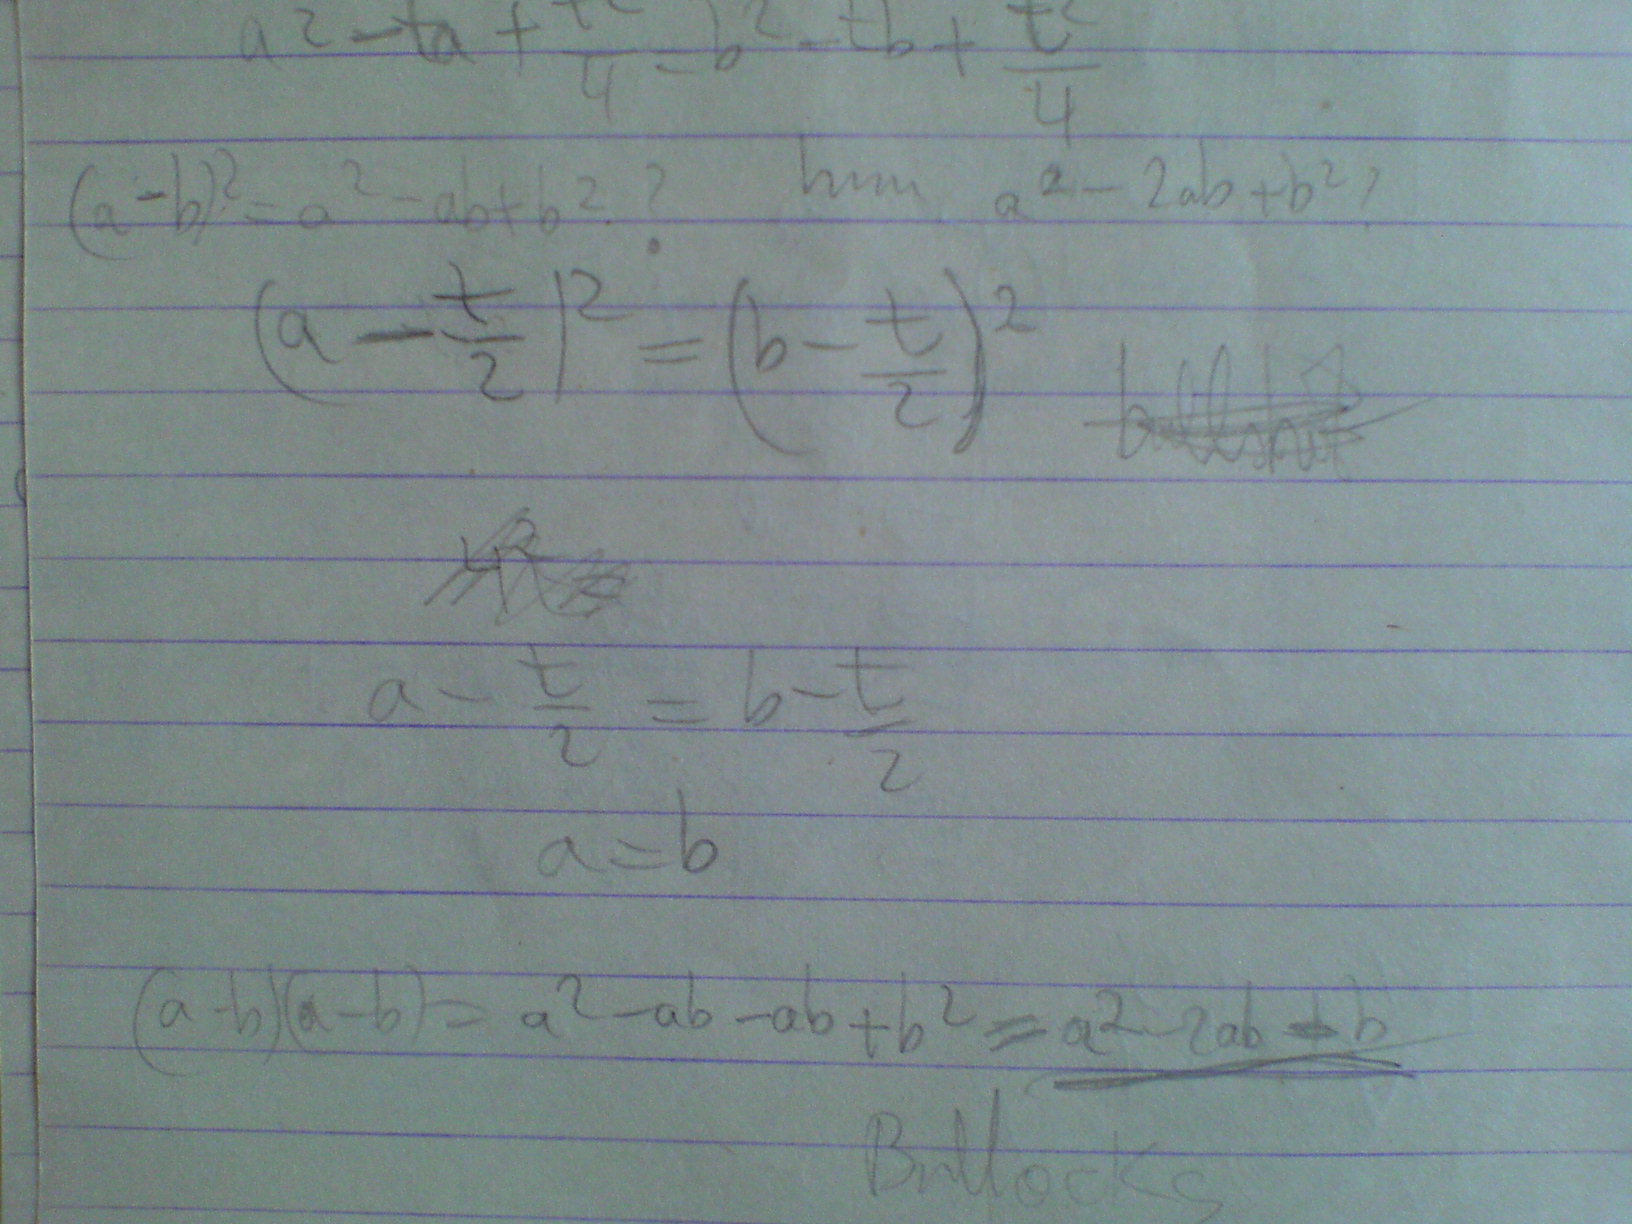 a² - ta + t²/4 = b² - tb + t²/4
(a - b)² = a² - ab + b² ? hmm a² - 2ab + b² ?
(a - t/2)² = (b - t/2)²
bullshit
a - t/2 = b - t/2
a = b
(a - b)(a - b) = a² - ab - ab + b² = a² - 2ab + b
Bullocks